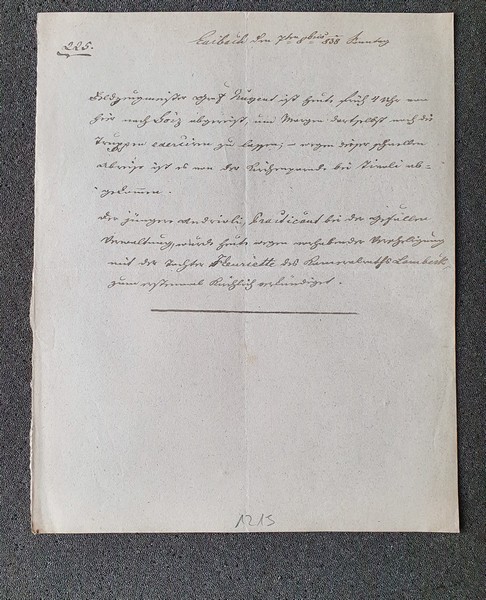 225.
Laibach den 7ten 8ber 838 Sonntag
Feldzeugmeister Graf Nugent ist heute früh 4 Uhr von
hier nach Görz abgereist, um Morgen dortselbst noch die
Truppen exerciren zu lassen, – wegen dieser schnellen
Abreise ist es von der Kirchenparade bei Tivoli ab=
gekommen.
Der jüngere Andrioli, Practicant bei der Gefällen
Verwaltung, wurde heute wegen vorhabender Verehelichung
mit der Tochter Henriette des Kameralraths Lembeck,
zum erstenmal Kirchlich verkündiget.
1215